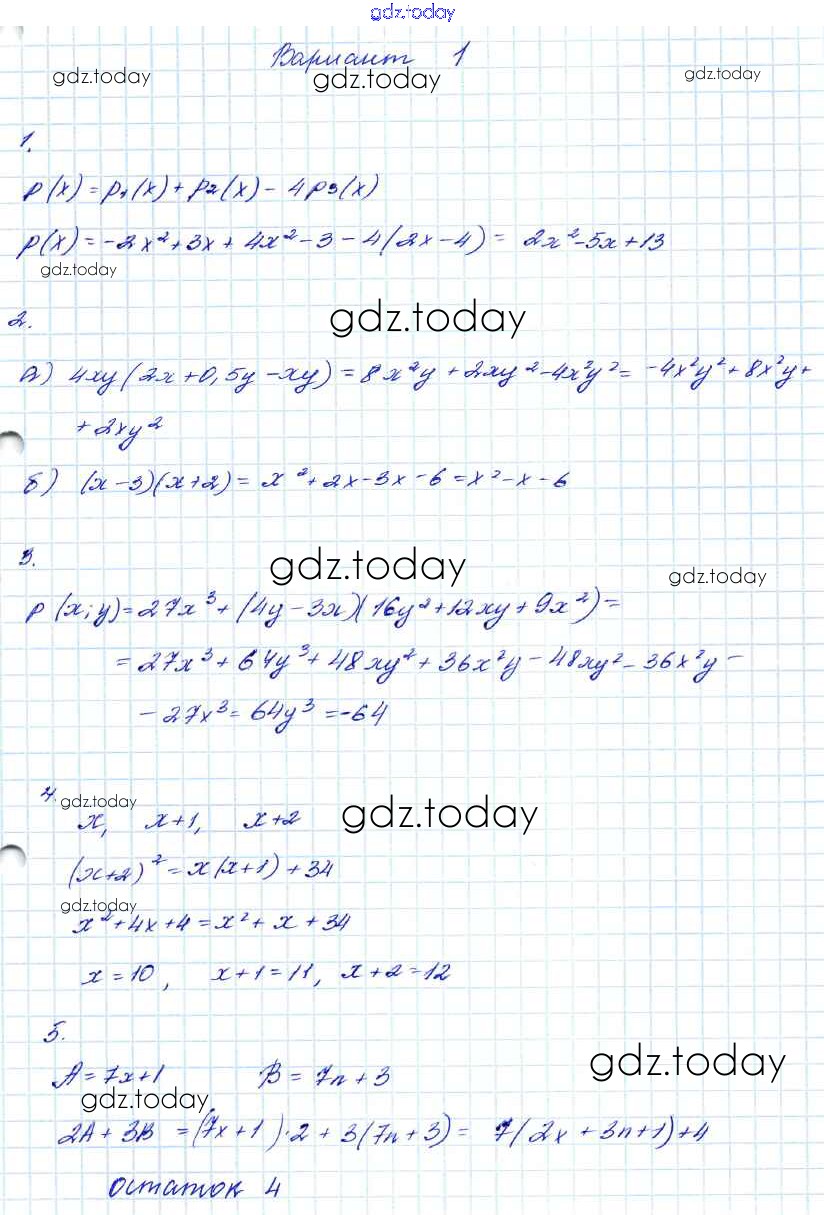 gdz.today
Вариант 1
gdz.today gdz.today gdz.today
1.
p(x) = p1(x) + p2(x) - 4p3(x)
p(x) = -2x² + 3x + 4x² - 3 - 4(2x - 4) = 2x² - 5x + 13
gdz.today
2.
gdz.today
а) 4xy(2x + 0,5y - xy) = 8x²y + 2xy² - 4x²y² = -4x²y² + 8x²y +
+ 2xy²
б) (x - 3)(x + 2) = x² + 2x - 3x - 6 = x² - x - 6
3.
gdz.today gdz.today
p(x;y) = 27x³ + (4y - 3x)(16y² + 12xy + 9x²) =
= 27x³ + 64y³ + 48xy² + 36x²y - 48xy² - 36x²y -
- 27x³ = 64y³ = -64
4.
gdz.today gdz.today
x, x+1, x+2
(x+2)² = x(x+1) + 34
gdz.today
x² + 4x + 4 = x² + x + 34
x = 10, x + 1 = 11, x + 2 = 12
5.
gdz.today
A = 7x + 1 B = 7n + 3
gdz.today
2A + 3B = (7x + 1)·2 + 3(7n + 3) = 7(2x + 3n + 1) + 4
остаток 4